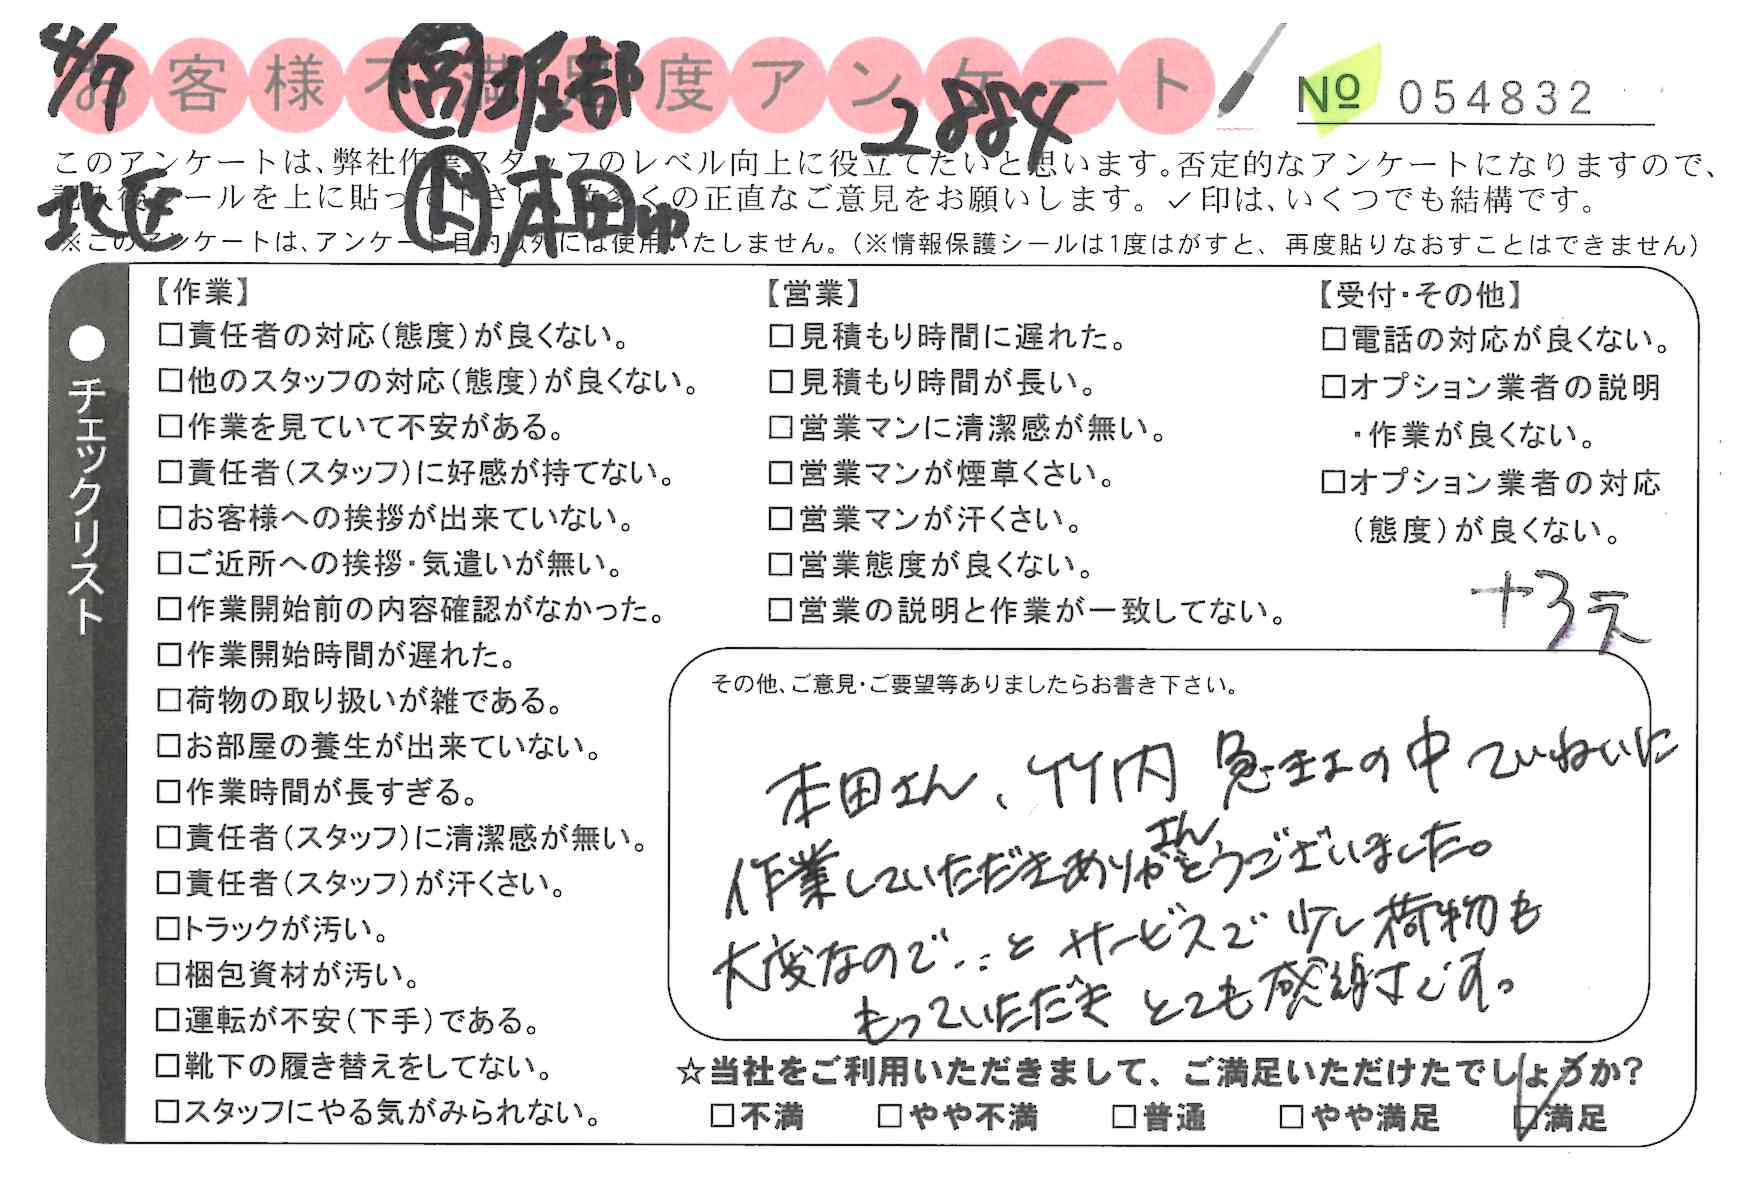 4/7
お客様不満足度アンケート
2884
No 054832
このアンケートは、弊社作業スタッフのレベル向上に役立てたいと思います。否定的なアンケートになりますので、
記入後シールを上に貼って下さい。数多くの正直なご意見をお願いします。✓印は、いくつでも結構です。
北区
本田
※このアンケートは、アンケート目的以外には使用いたしません。（※情報保護シールは1度はがすと、再度貼りなおすことはできません）
●チェックリスト
【作業】
□責任者の対応（態度）が良くない。
□他のスタッフの対応（態度）が良くない。
□作業を見ていて不安がある。
□責任者（スタッフ）に好感が持てない。
□お客様への挨拶が出来ていない。
□ご近所への挨拶・気遣いが無い。
□作業開始前の内容確認がなかった。
□作業開始時間が遅れた。
□荷物の取り扱いが雑である。
□お部屋の養生が出来ていない。
□作業時間が長すぎる。
□責任者（スタッフ）に清潔感が無い。
□責任者（スタッフ）が汗くさい。
□トラックが汚い。
□梱包資材が汚い。
□運転が不安（下手）である。
□靴下の履き替えをしてない。
□スタッフにやる気がみられない。
【営業】
□見積もり時間に遅れた。
□見積もり時間が長い。
□営業マンに清潔感が無い。
□営業マンが煙草くさい。
□営業マンが汗くさい。
□営業態度が良くない。
□営業の説明と作業が一致してない。
【受付・その他】
□電話の対応が良くない。
□オプション業者の説明
・作業が良くない。
□オプション業者の対応
（態度）が良くない。
+3
その他、ご意見・ご要望等ありましたらお書き下さい。
本田さん、竹内さん 急きょの中 ていねいに
作業していただきありがとうございました。
大変なので‥と サービスで 少し荷物も
もっていただき とても感謝です。
☆当社をご利用いただきまして、ご満足いただけたでしょうか?
□不満 □やや不満 □普通 □やや満足 ☑満足